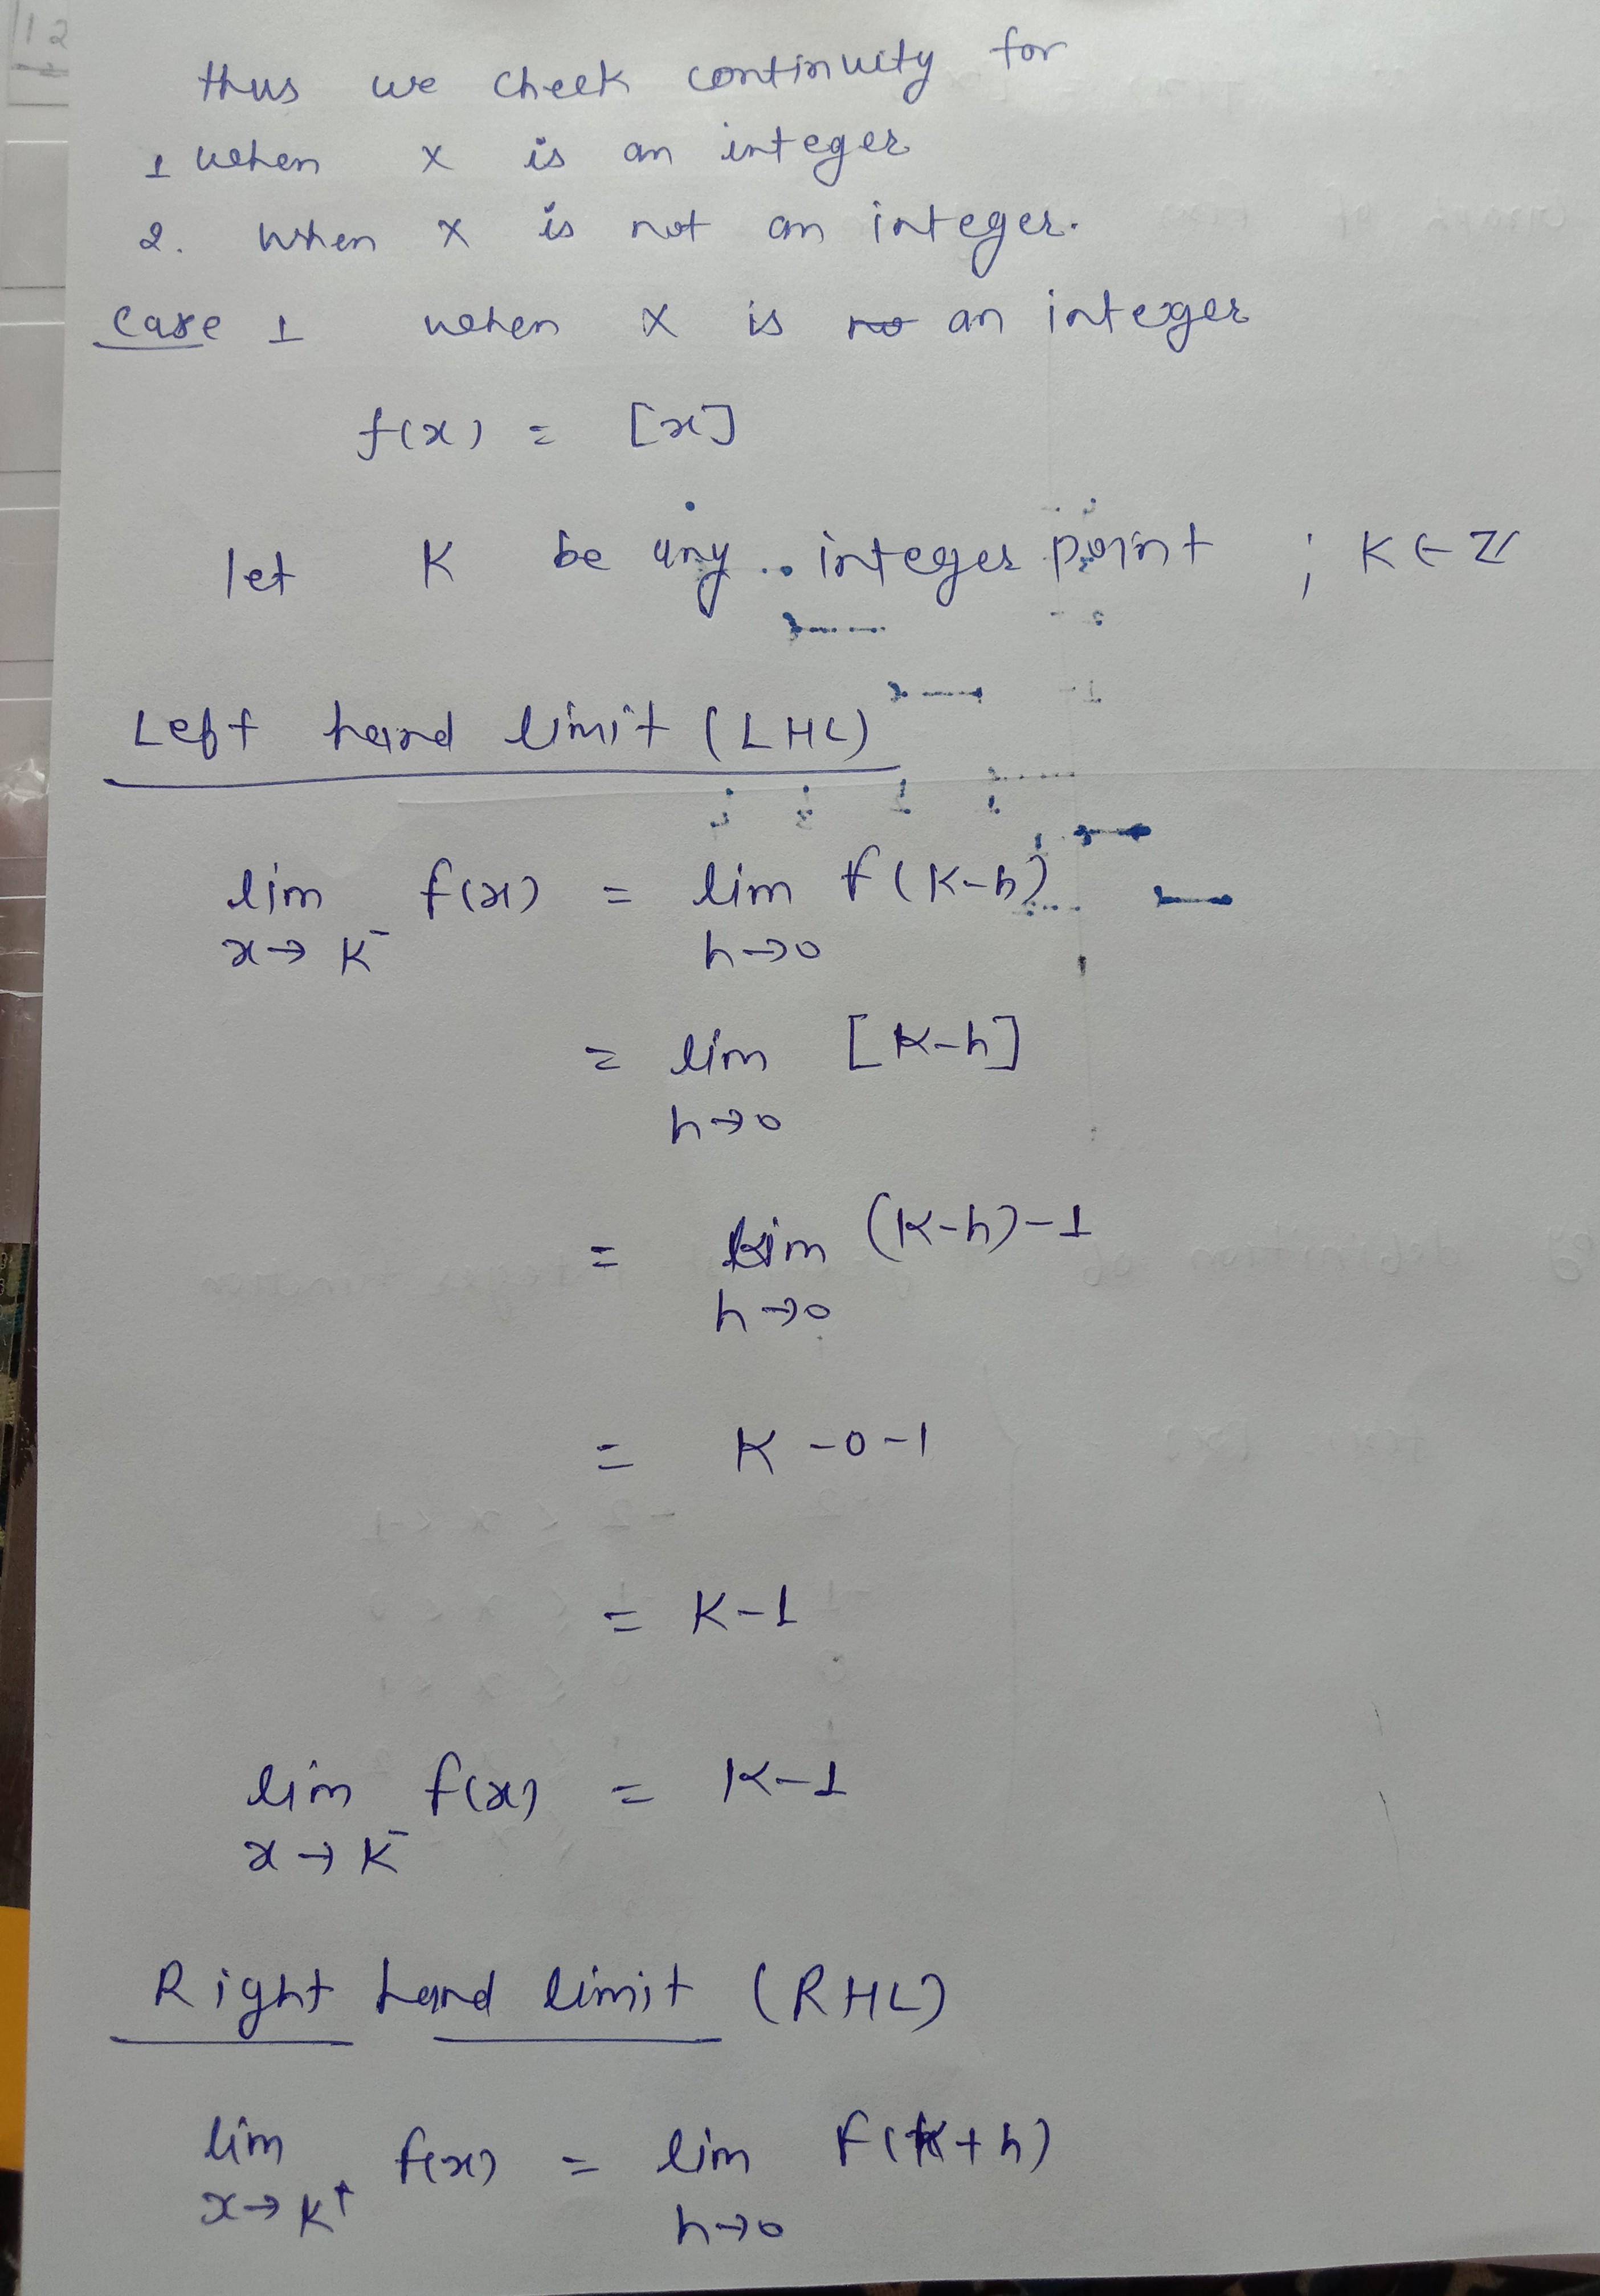 12
thus we check continuity for
1 when x is an integer
2. when x is not an integer.
case 1 when x is an integer
f(x) = [x]
let K be any integer point ; K ∈ Z
Left hand limit (LHL)
lim f(x) = lim f(K-h)
x→K⁻ h→0
= lim [K-h]
h→0
= lim (K-h)-1
h→0
= K-0-1
= K-1
lim f(x) = K-1
x→K⁻
Right hand limit (RHL)
lim f(x) = lim f(K+h)
x→K⁺ h→0